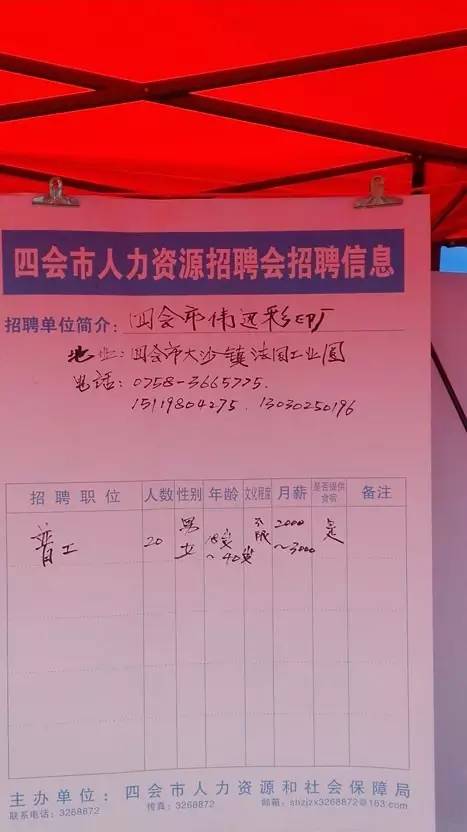 四会市人力资源招聘会招聘信息
招聘单位简介：四会市伟远彩印厂
地址：四会市大沙镇法国工业园
电话：0758-3665775.
15119804275. 13030250196
招聘职位 人数 性别 年龄 文化程度 月薪 是否提供食宿 备注
普工 20 男女 18岁~40岁 不限 2000~3000 是
主办单位：四会市人力资源和社会保障局
联系电话：3268872 传真：3268872 邮箱：shzjzx3268872@163.com